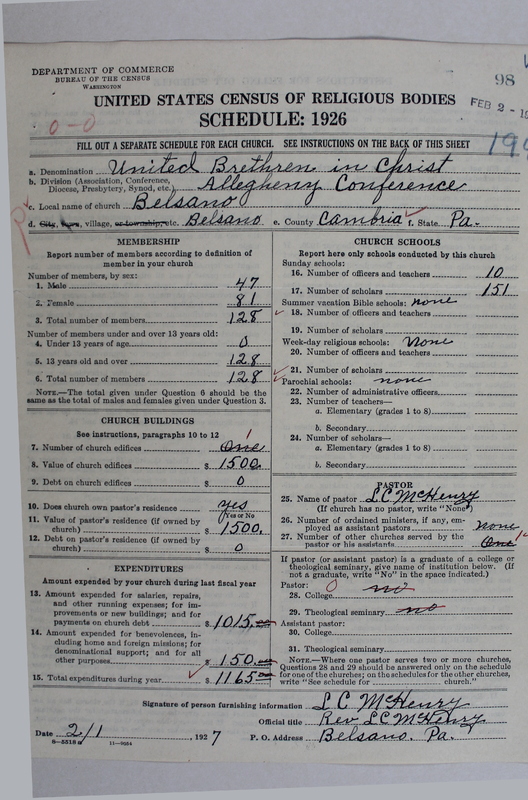 DEPARTMENT OF COMMERCE
BUREAU OF THE CENSUS
WASHINGTON
98
FEB 2 - 19
UNITED STATES CENSUS OF RELIGIOUS BODIES
SCHEDULE: 1926
0-0
199
FILL OUT A SEPARATE SCHEDULE FOR EACH CHURCH. SEE INSTRUCTIONS ON THE BACK OF THIS SHEET
a. Denomination United Brethren in Christ
b. Division (Association, Conference, Diocese, Presbytery, Synod, etc.) Allegheny Conference
c. Local name of church Belsano
d. City, town, village, or township, etc. Belsano e. County Cambria f. State Pa.
MEMBERSHIP
Report number of members according to definition of
member in your church
Number of members, by sex:
1. Male 47
2. Female 81
3. Total number of members 128
Number of members under and over 13 years old:
4. Under 13 years of age 0
5. 13 years old and over 128
6. Total number of members 128
NOTE.—The total given under Question 6 should be the
same as the total of males and females given under Question 3.
CHURCH BUILDINGS
See instructions, paragraphs 10 to 12
7. Number of church edifices One 1
8. Value of church edifices $ 1500.
9. Debt on church edifices $ 0
10. Does church own pastor's residence yes
Yes or No
11. Value of pastor's residence (if owned by
church) $ 1500.
12. Debt on pastor's residence (if owned by
church) $ 0
EXPENDITURES
Amount expended by your church during last fiscal year
13. Amount expended for salaries, repairs,
and other running expenses; for im-
provements or new buildings; and for
payments on church debt $ 1015.00
14. Amount expended for benevolences, in-
cluding home and foreign missions; for
denominational support; and for all
other purposes $ 150.00
15. Total expenditures during year $ 1165.00
CHURCH SCHOOLS
Report here only schools conducted by this church
Sunday schools:
16. Number of officers and teachers 10
17. Number of scholars 151
Summer vacation Bible schools: none
18. Number of officers and teachers
19. Number of scholars
Week-day religious schools: None
20. Number of officers and teachers
21. Number of scholars
Parochial schools: none
22. Number of administrative officers
23. Number of teachers—
a. Elementary (grades 1 to 8)
b. Secondary
24. Number of scholars—
a. Elementary (grades 1 to 8)
b. Secondary
PASTOR
25. Name of pastor L C McHenry
(If church has no pastor, write "None")
26. Number of ordained ministers, if any, em-
ployed as assistant pastors none
27. Number of other churches served by the
pastor or his assistants One 1
If pastor (or assistant pastor) is a graduate of a college or
theological seminary, give name of institution below. (If
not a graduate, write "No" in the space indicated.)
Pastor: 0
28. College no
29. Theological seminary no
Assistant pastor:
30. College
31. Theological seminary
NOTE.—Where one pastor serves two or more churches,
Questions 28 and 29 should be answered only on the schedule
for one of the churches; on the schedules for the other churches,
write "See schedule for church."
Signature of person furnishing information L C McHenry
Official title Rev L C McHenry
Date 2/1 1927 P. O. Address Belsano. Pa.
8-5518a 11-9054